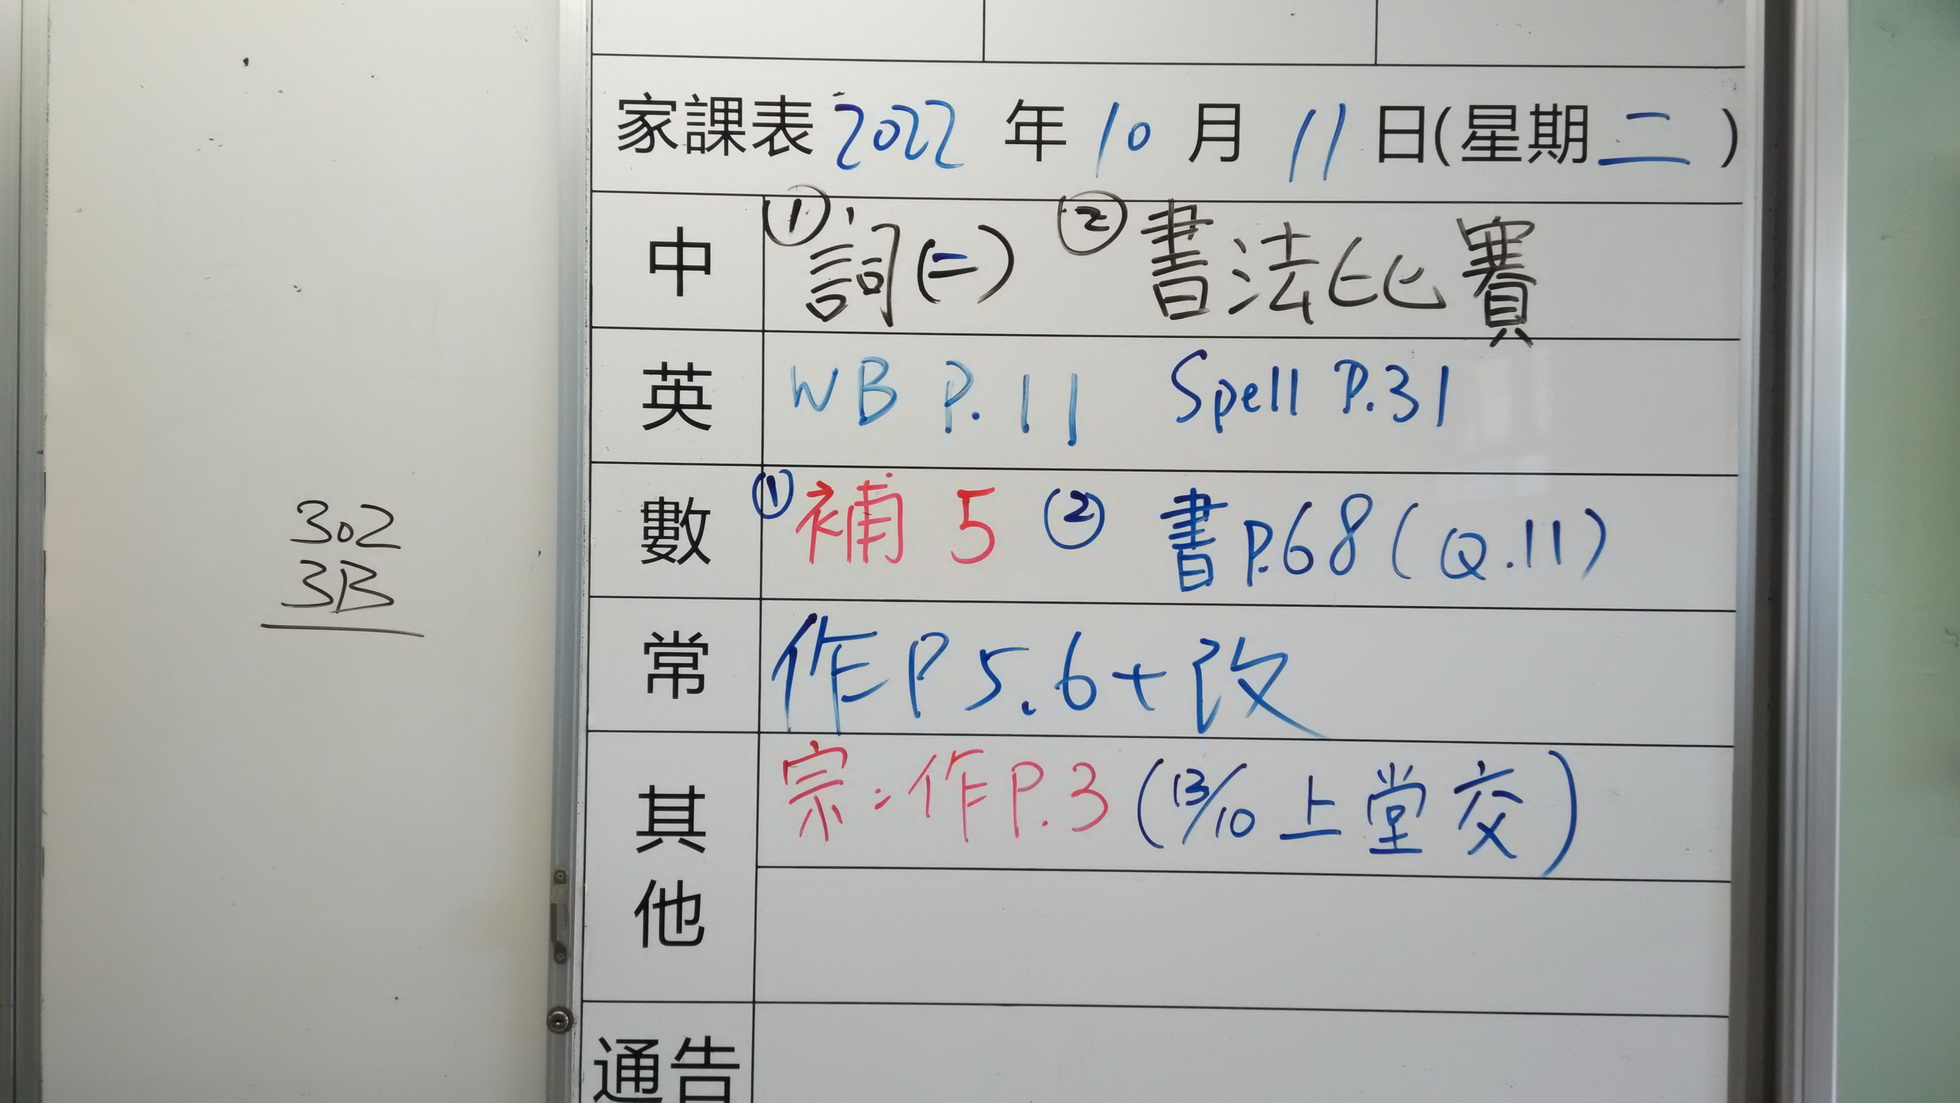 家課表 2022 年 10 月 11 日(星期 二 )
中 ① 詞(二) ② 書法比賽
英 WB P.11 Spell P.31
數 ① 補 5 ② 書 P.68 (Q.11)
常 作 P 5.6 + 改
其他 宗:作 P.3 (13/10 上堂交)
通告
302
3B